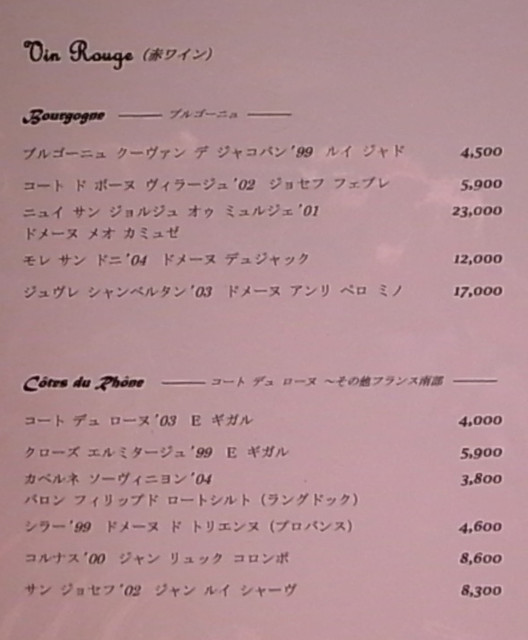 Vin Rouge (赤ワイン)
Bourgogne ブルゴーニュ
ブルゴーニュ クーヴァン デ ジャコバン'99 ルイ ジャド 4,500
コート ド ボーヌ ヴィラージュ'02 ジョセフ フェブレ 5,900
ニュイ サン ジョルジュ オゥ ミュルジェ'01 23,000
ドメーヌ メオ カミュゼ
モレ サン ドニ'04 ドメーヌ デュジャック 12,000
ジュヴレ シャンベルタン'03 ドメーヌ アンリ ペロ ミノ 17,000
Côtes du Rhône コート デュ ローヌ ～その他フランス南部
コート デュ ローヌ'03 E ギガル 4,000
クローズ エルミタージュ'99 E ギガル 5,900
カベルネ ソーヴィニヨン'04 3,800
バロン フィリップド ロートシルト (ラングドック)
シラー'99 ドメーヌ ド トリエンヌ (プロバンス) 4,600
コルナス'00 ジャン リュック コロンボ 8,600
サン ジョセフ'02 ジャン ルイ シャーヴ 8,300